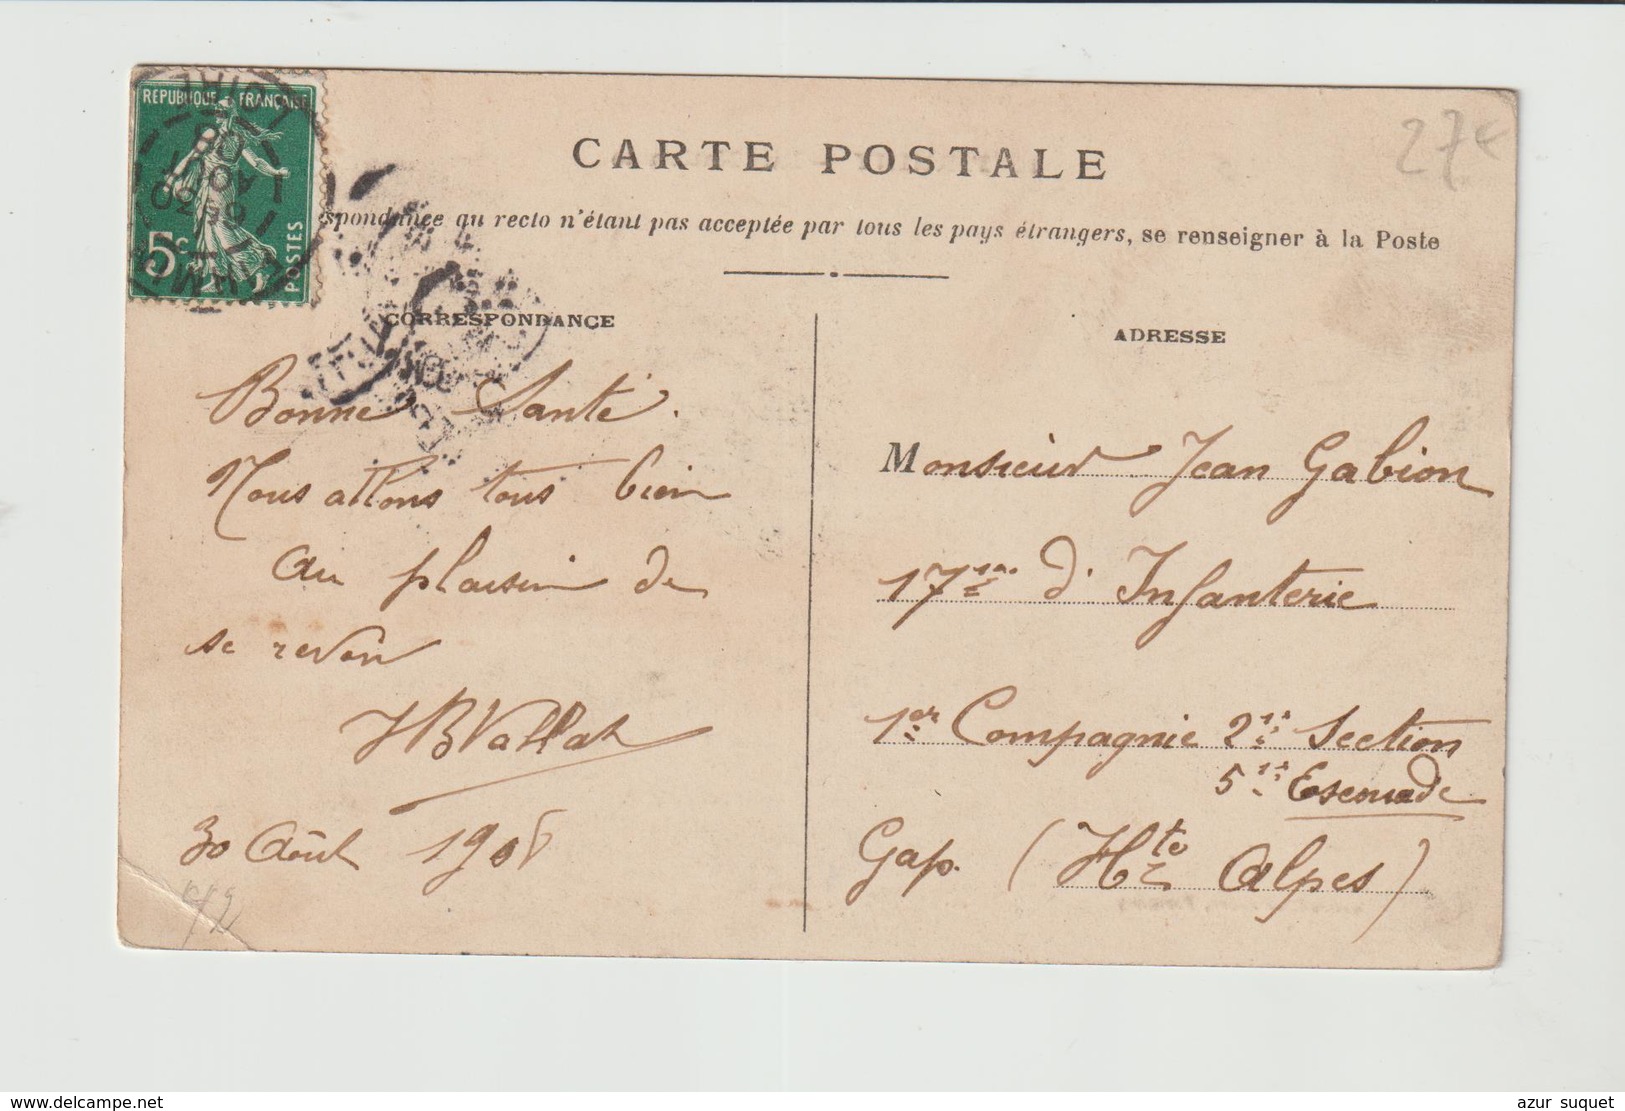 REPUBLIQUE FRANÇAISE
5c
POSTES
27€
CARTE POSTALE
spondance au recto n'étant pas acceptée par tous les pays étrangers, se renseigner à la Poste
CORRESPONDANCE
Bonne Santé.
Nous allons tous bien
au plaisir de
se revoir
JBVallat
30 Août 1908
ADRESSE
Monsieur Jean Gabion
17me d'Infanterie
1er Compagnie 2e Section
5e Escouade
Gap. (Hte Alpes)
azur suquet